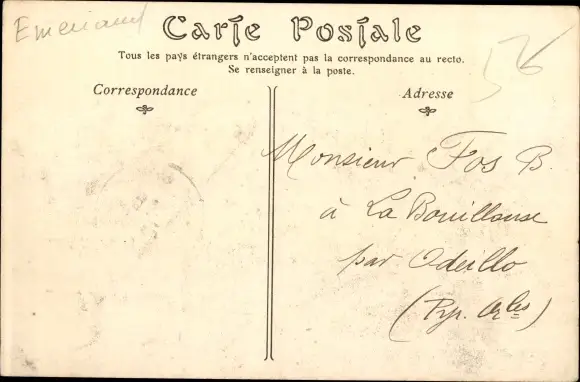 Carte Postale
Tous les pays étrangers n'acceptent pas la correspondance au recto.
Se renseigner à la poste.
Correspondance
Adresse
Monsieur Fos B.
à La Bouillouse
par Odeillo
(Pyr. Orles)